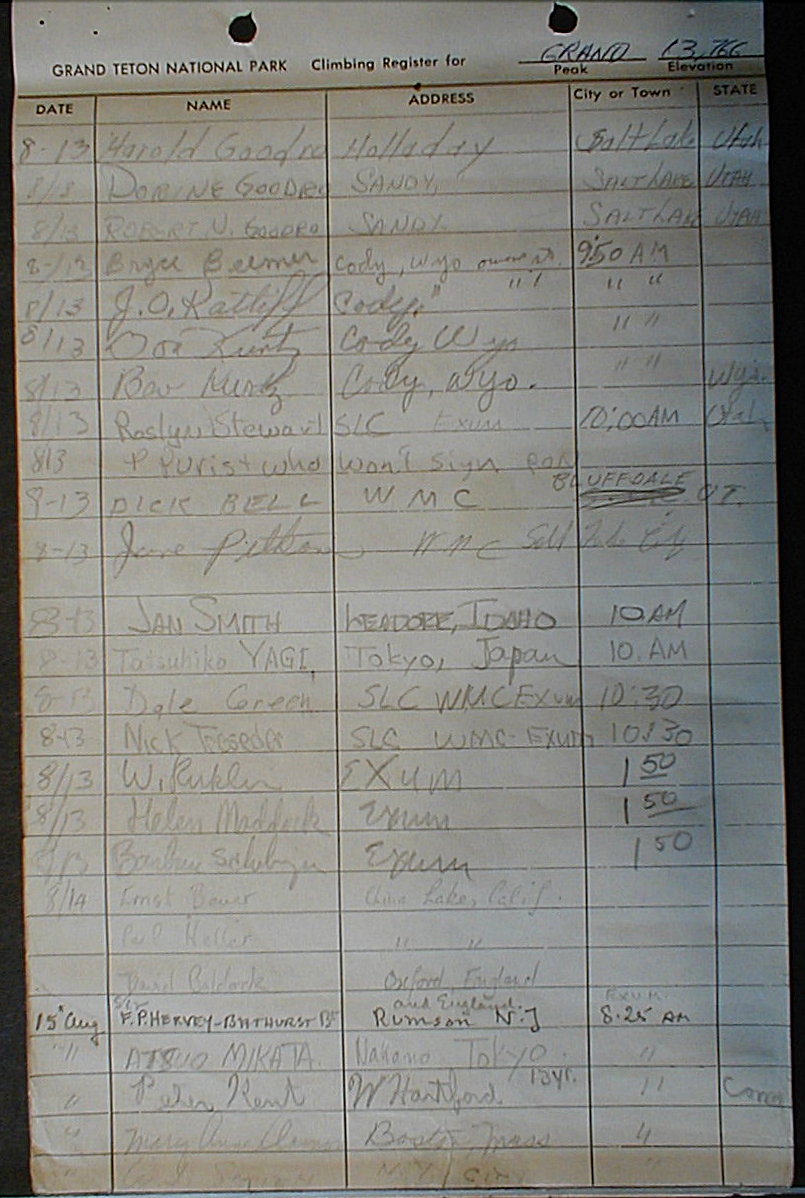 GRAND TETON NATIONAL PARK Climbing Register for GRAND 13,766
Peak Elevation
DATE NAME ADDRESS City or Town STATE
8-13 Harold Goodro Holladay Salt Lake Utah
8/13 DORINE GOODRO SANDY, SALT LAKE UTAH
8/13 ROBERT N. GOODRO SANDY SALT LAKE UTAH
8-13 Bryce Beemer Cody, Wyo 9:50 AM
8/13 J.O. Ratliff Cody, " " " " "
8/13 Don Kurtz Cody Wyo " "
8/13 Cody, Wyo. " " Wyo.
8/13 Roslyn Stewart SLC Exum 10:00AM Utah
8/13 A Purist who won't sign
8-13 DICK BELL WMC BLUFFDALE UT.
8-13 WMC Salt Lake City
8-13 JAN SMITH LEADORE, IDAHO 10 AM
8-13 Tatsuhiko YAGI, Tokyo, Japan 10. AM
8-13 Dale Green SLC WMC Exum 10:30
8-13 Nick SLC WMC-EXUM 10:30
8/13 W. EXUM 1 50
8/13 Helen Maddock Exum 1 50
8/13 Barbara Exum 1 50
8/14 Ernst Bauer China Lake, Calif.
Heller " "
David Oxford, England
15 Aug Sir F.P. HERVEY-BATHURST Bt Rumson N.J and England. EXUM 8.25 AM
" ATSUO MIKATA. Nakano Tokyo. "
" Peter Kent W Hartford 12yr. " Conn
" Mary Anne Boston, Mass "
" N.Y. City "